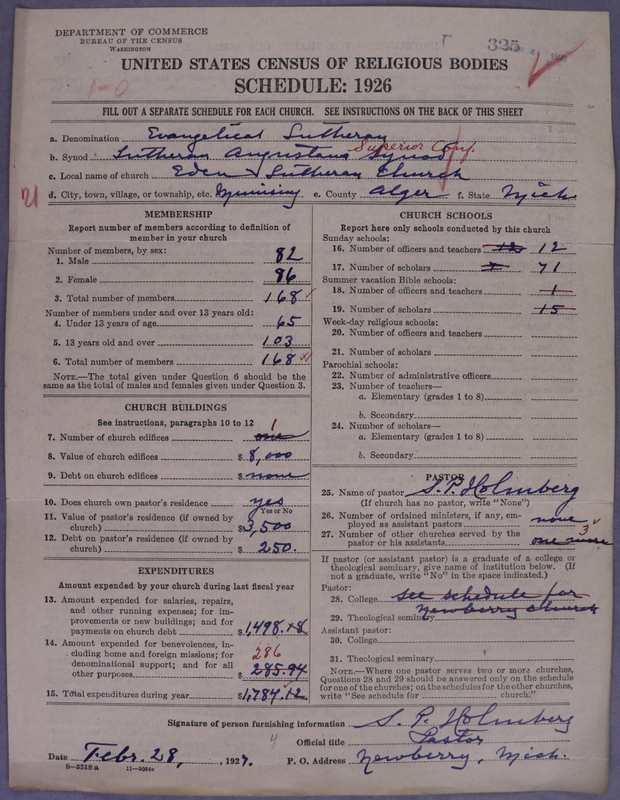 DEPARTMENT OF COMMERCE
BUREAU OF THE CENSUS
WASHINGTON
325
UNITED STATES CENSUS OF RELIGIOUS BODIES
1-0
SCHEDULE: 1926
FILL OUT A SEPARATE SCHEDULE FOR EACH CHURCH. SEE INSTRUCTIONS ON THE BACK OF THIS SHEET
a. Denomination Evangelical Lutheran
b. Synod Lutheran Augustana Synod Superior Conf.
c. Local name of church Eden Lutheran Church
21 d. City, town, village, or township, etc. Munising e. County Alger f. State Mich
MEMBERSHIP
Report number of members according to definition of
member in your church
Number of members, by sex:
1. Male 82
2. Female 86
3. Total number of members 168
Number of members under and over 13 years old:
4. Under 13 years of age 65
5. 13 years old and over 103
6. Total number of members 168
NOTE.—The total given under Question 6 should be
same as the total of males and females given under Question 3.
CHURCH BUILDINGS
See instructions, paragraphs 10 to 12
7. Number of church edifices one 1
8. Value of church edifices $ 8,000
9. Debt on church edifices $ none
10. Does church own pastor's residence yes
Yes or No
11. Value of pastor's residence (if owned by
church) $ 3,500
12. Debt on pastor's residence (if owned by
church) $ 250.
EXPENDITURES
Amount expended by your church during last fiscal year
13. Amount expended for salaries, repairs,
and other running expenses; for im-
provements or new buildings; and for
payments on church debt $ 1,498.18
14. Amount expended for benevolences, in-
cluding home and foreign missions; for
denominational support; and for all
other purposes $ 285.94 286
15. Total expenditures during year $ 1,784.12
CHURCH SCHOOLS
Report here only schools conducted by this church
Sunday schools:
16. Number of officers and teachers 12 12
17. Number of scholars 71
Summer vacation Bible schools:
18. Number of officers and teachers 1
19. Number of scholars 15
Week-day religious schools:
20. Number of officers and teachers
21. Number of scholars
Parochial schools:
22. Number of administrative officers
23. Number of teachers—
a. Elementary (grades 1 to 8)
b. Secondary
24. Number of scholars—
a. Elementary (grades 1 to 8)
b. Secondary
PASTOR
25. Name of pastor S. P. Holmberg
(If church has no pastor, write "None")
26. Number of ordained ministers, if any, em-
ployed as assistant pastors none
27. Number of other churches served by the
pastor or his assistants one more 3
If pastor (or assistant pastor) is a graduate of a college or
theological seminary, give name of institution below. (If
not a graduate, write "No" in the space indicated.)
Pastor:
28. College see schedule for
29. Theological seminary Newberry Church
Assistant pastor:
30. College
31. Theological seminary
NOTE.—Where one pastor serves two or more churches,
Questions 28 and 29 should be answered only on the schedule
for one of the churches; on the schedules for the other churches,
write "See schedule for church."
Signature of person furnishing information S. P. Holmberg
Official title Pastor
Date Febr. 28, 1927. P. O. Address Newberry, Mich.
8-5318a 11-9054